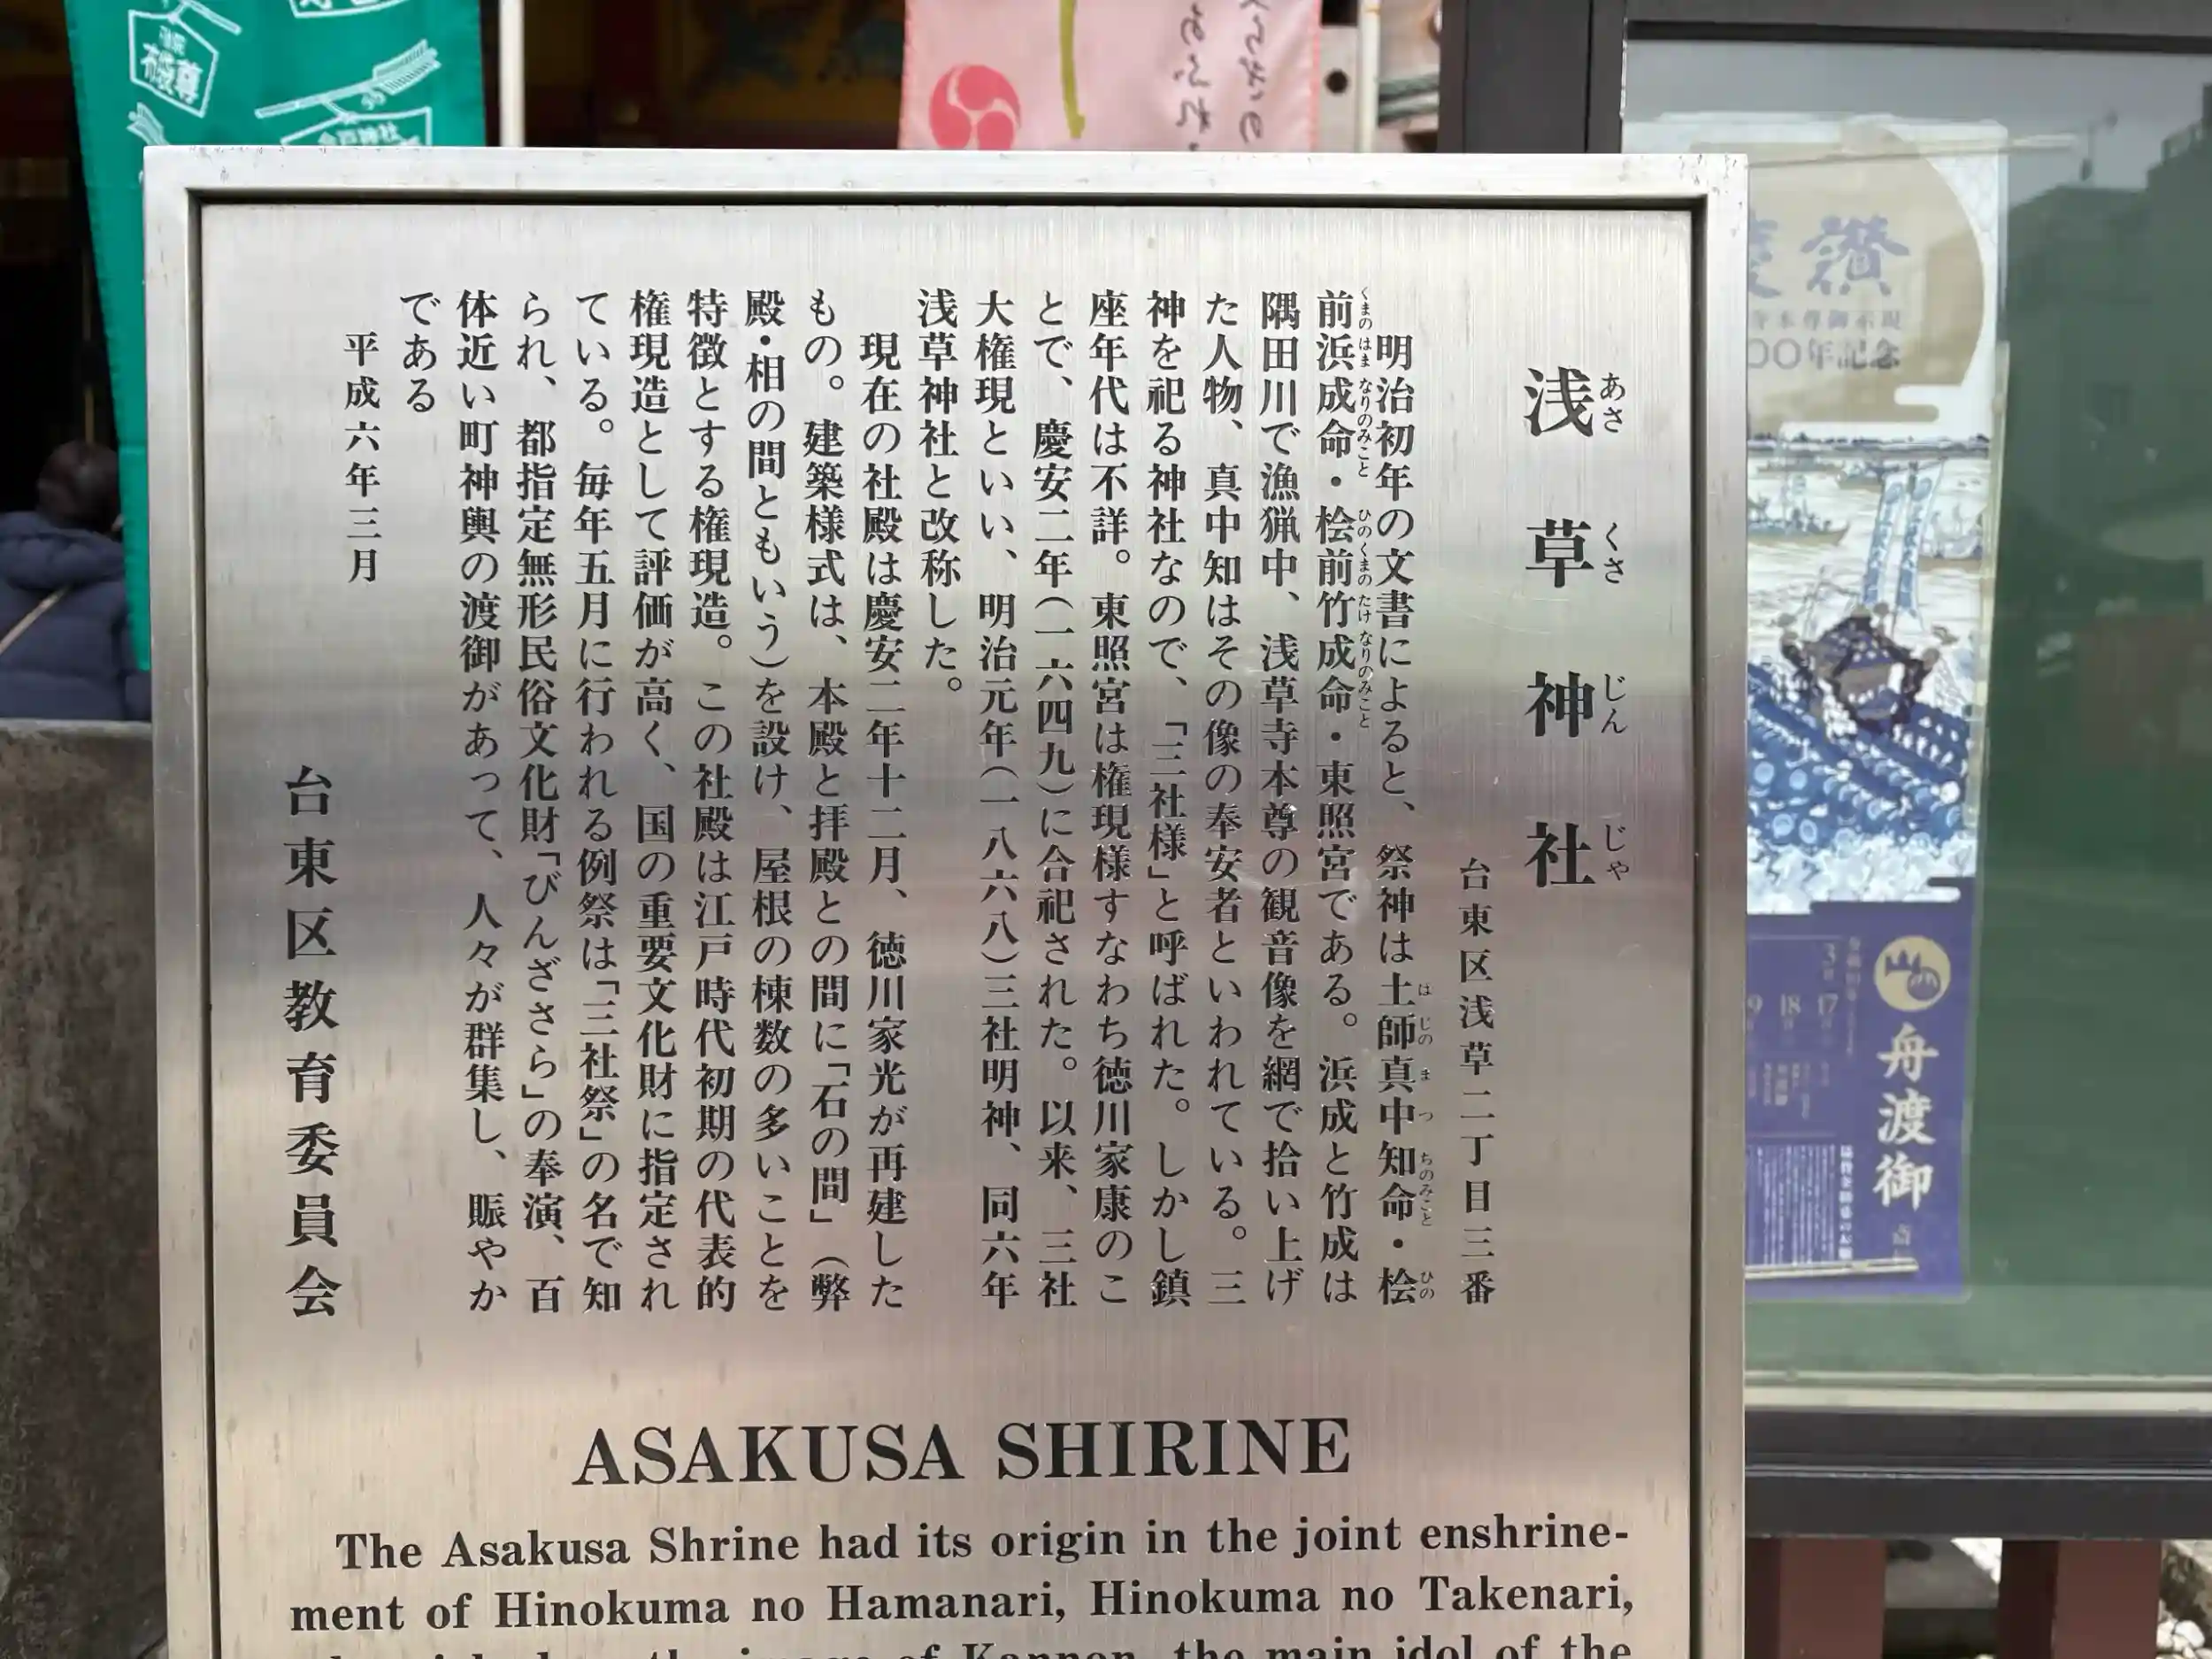 浅草神社
あさくさじんじゃ
台東区浅草二丁目三番
明治初年の文書によると、祭神は土師真中知命・桧
はじのまつちのみこと ひの
前浜成命・桧前竹成命・東照宮である。浜成と竹成は
くまのはまなりのみこと ひのくまのたけなりのみこと
隅田川で漁猟中、浅草寺本尊の観音像を網で拾い上げ
た人物、真中知はその像の奉安者といわれている。三
神を祀る神社なので、「三社様」と呼ばれた。しかし鎮
座年代は不詳。東照宮は権現様すなわち徳川家康のこ
とで、慶安二年(一六四九)に合祀された。以来、三社
大権現といい、明治元年(一八六八)三社明神、同六年
浅草神社と改称した。
現在の社殿は慶安二年十二月、徳川家光が再建した
もの。建築様式は、本殿と拝殿との間に「石の間」(弊
殿・相の間ともいう)を設け、屋根の棟数の多いことを
特徴とする権現造。この社殿は江戸時代初期の代表的
権現造として評価が高く、国の重要文化財に指定され
ている。毎年五月に行われる例祭は「三社祭」の名で知
られ、都指定無形民俗文化財「びんざさら」の奉演、百
体近い町神輿の渡御があって、人々が群集し、賑やか
である
平成六年三月
台東区教育委員会
ASAKUSA SHIRINE
The Asakusa Shrine had its origin in the joint enshrine-
ment of Hinokuma no Hamanari, Hinokuma no Takenari,
the image of Kannon, the main idol of the
讃
年記念
舟渡御
17
18